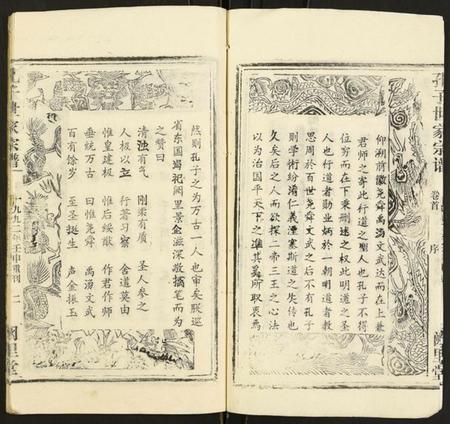 孔子世家宗谱 卷首 序 阙里堂
仰溯前徽尧舜禹汤文武达而在上兼
君师之寄此行道之圣人也孔子不得
位穷而在下秉删述之权此明道之圣
人也行道者勋业炳於一朝明道者教
思周於百世尧舜文武之后不有孔子
则学术纷淆仁义湮塞斯道之失传也
久矣后之人而欲探二帝三王之心法
以为治国平天下之准其奚所取衷焉
然则孔子之为万古一人也审矣朕巡
省东国谒祀阙里景企滋深敬摛笔而为
之赞曰
清浊有气 刚柔有质 圣人参之
人极以立 行著习察 舍道莫由
惟皇建极 惟后绥猷 作君作师
垂统万古 曰惟尧舜 禹汤文武
百有余岁 至圣挺生 声金振玉
孔子世家宗谱 一九九二年壬申重刊 二 阙里堂